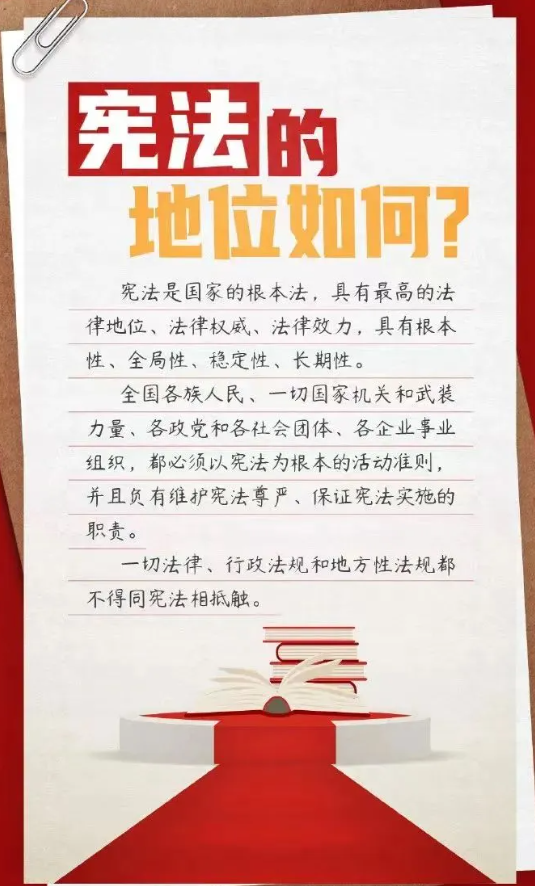 宪法的
地位如何?
宪法是国家的根本法，具有最高的法
律地位、法律权威、法律效力，具有根本
性、全局性、稳定性、长期性。
全国各族人民、一切国家机关和武装
力量、各政党和各社会团体、各企业事业
组织，都必须以宪法为根本的活动准则，
并且负有维护宪法尊严、保证宪法实施的
职责。
一切法律、行政法规和地方性法规都
不得同宪法相抵触。